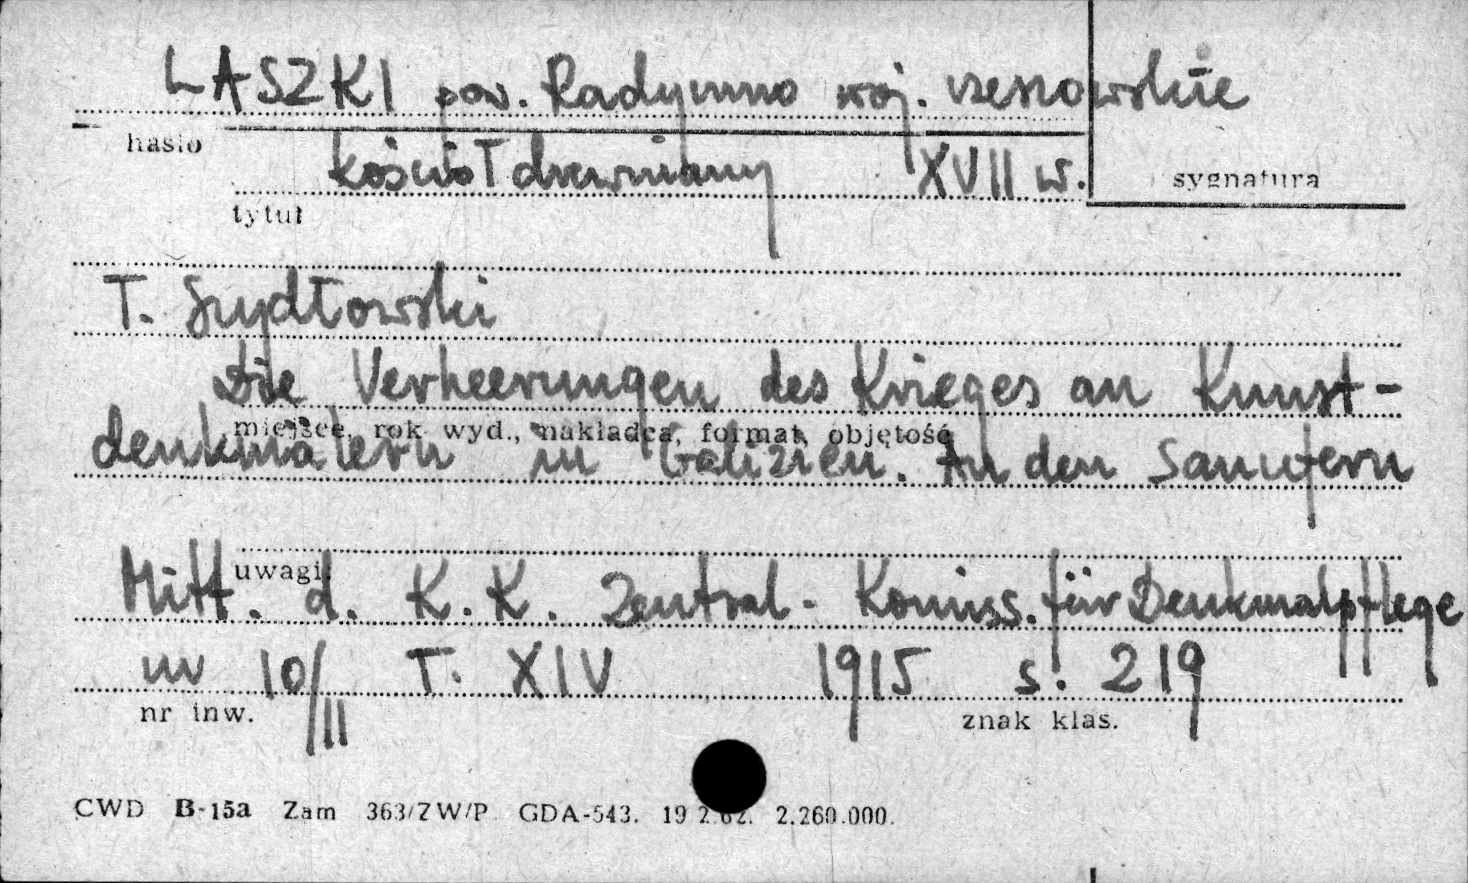 LASZKI pow. Radymno woj. rzeszowskie
hasło
kościoł drewniany XVII w.
sygnatura
tytuł
T. Szydłowski
Die Verheerungen des Krieges an Kunst-
miejsce, rok wyd., nakładca, format, objętość
denkmälern in Galizien. An den Sanufern
uwagi:
Mitt. d. K.K. Zentral-Komiss. für Denkmalpflege
nr 10/11 T. XIV 1915 s. 219
nr inw. znak klas.
CWD B-15a Zam 363/7W/P GDA-543. 19 2.62. 2.260.000.